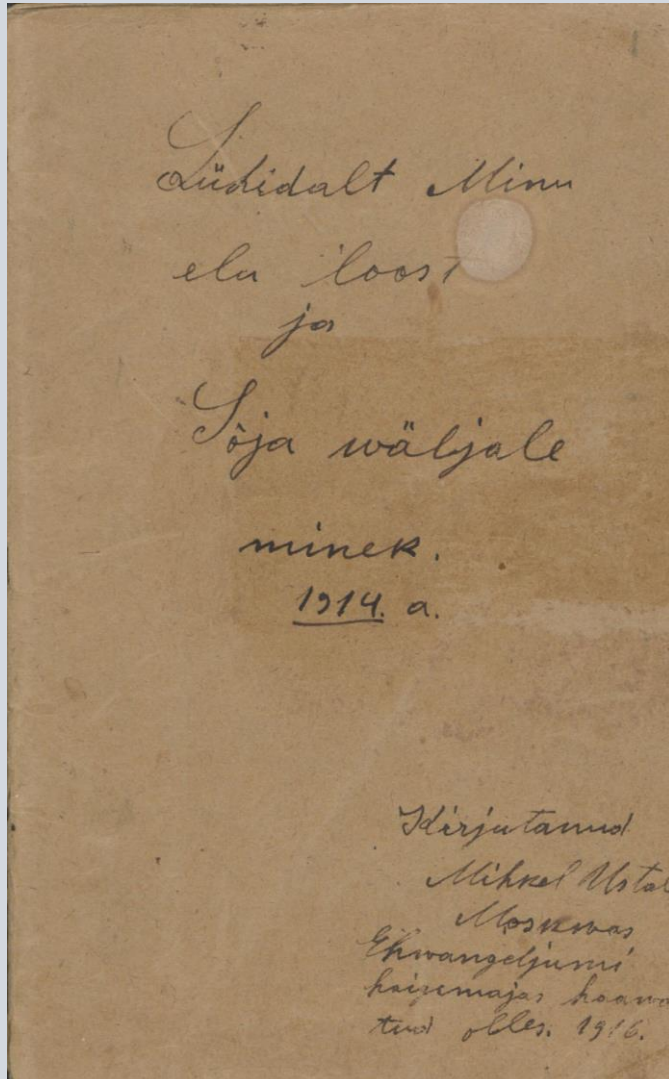 Lühidalt Minu
elu loost
ja
Sõja wäljale
minek.
1914. a.
Kirjutanud
Mihkel Ustal
Moskwas
Ehwangeljumi
haigemajas haawa
tud olles. 1916.